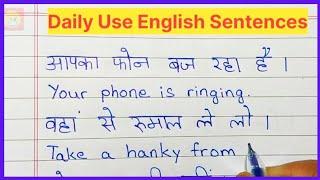 Daily Use English Sentences
आपका फोन बज रहा है ।
Your phone is ringing.
वहां से रुमाल ले लो ।
Take a hanky from